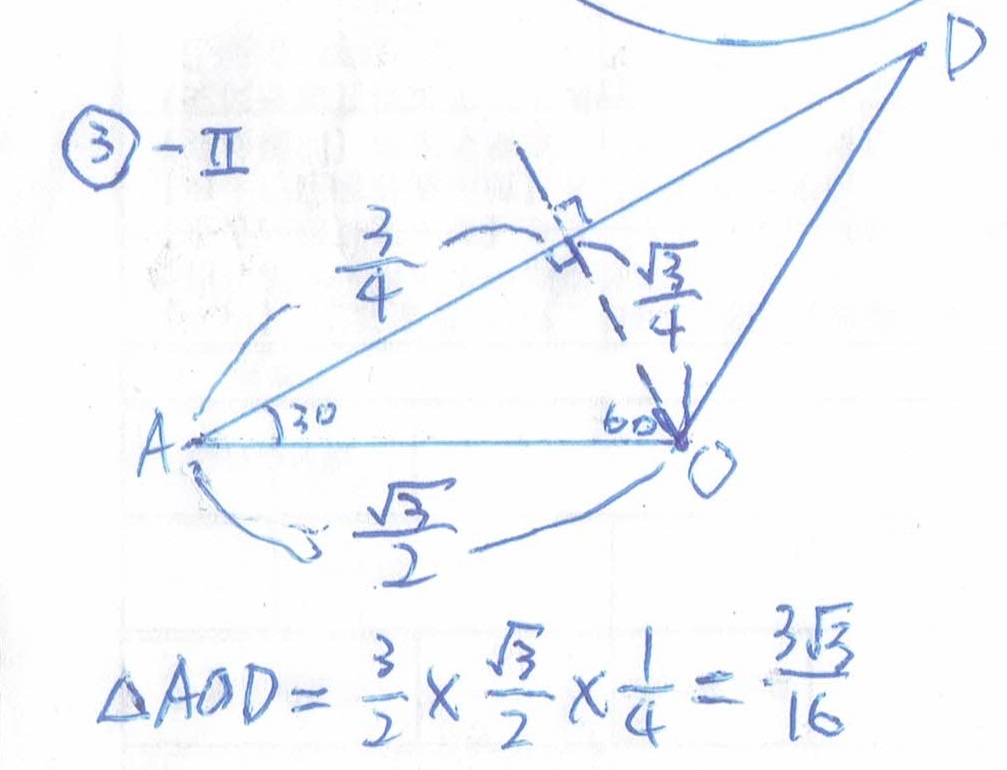 D
③-Ⅱ
3/4
√3/4
A 30 60 O
√3/2
△AOD = 3/2 × √3/2 × 1/4 = 3√3/16